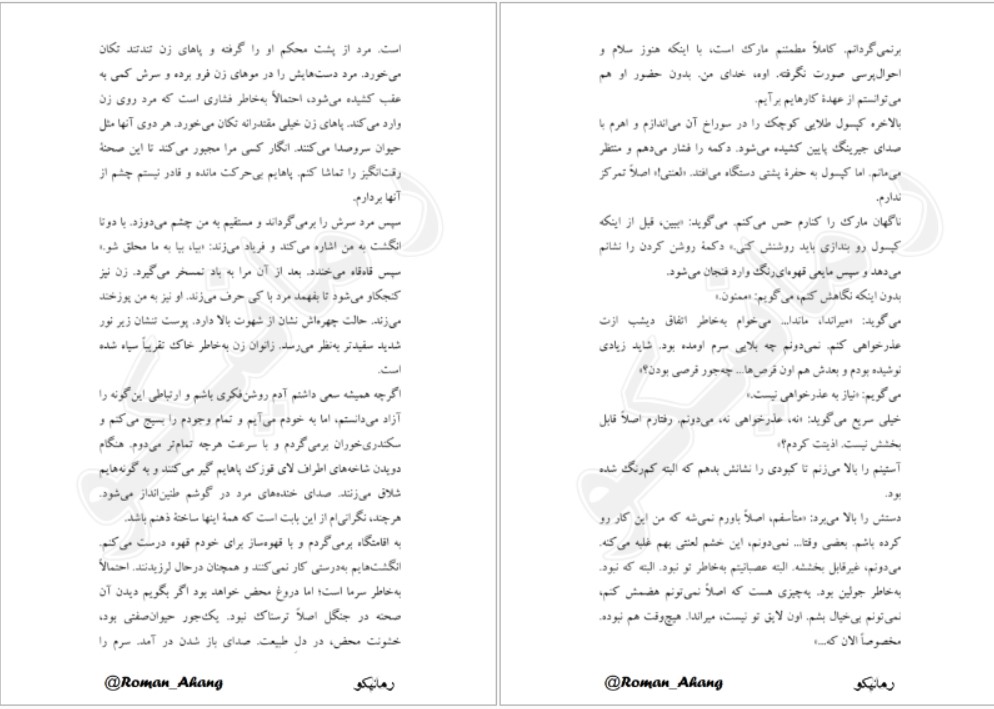 است. مرد از پشت محکم او را گرفته و پاهای زن تندتند تکان
می‌خورد. مرد دست‌هایش را در موهای زن فرو برده و سرش کمی به
عقب کشیده می‌شود، احتمالاً به‌خاطر فشاری است که مرد روی زن
وارد می‌کند. پاهای زن خیلی مقتدرانه تکان می‌خورد. هر دوی آنها مثل
حیوان سروصدا می‌کنند. انگار کسی مرا مجبور می‌کند تا این صحنهٔ
رقت‌انگیز را تماشا کنم. پاهایم بی‌حرکت مانده و قادر نیستم چشم از
آنها بردارم.
سپس مرد سرش را برمی‌گرداند و مستقیم به من چشم می‌دوزد. با دوتا
انگشت به من اشاره می‌کند و فریاد می‌زند: «بیا، بیا به ما محلق شو.»
سپس قاه‌قاه می‌خندد. بعد از آن مرا به باد تمسخر می‌گیرد. زن نیز
کنجکاو می‌شود تا بفهمد مرد با کی حرف می‌زند. او نیز به من پوزخند
می‌زند. حالت چهره‌اش نشان از شهوت بالا دارد. پوست تنشان زیر نور
شدید سفیدتر به‌نظر می‌رسد. زانوان زن به‌خاطر خاک تقریباً سیاه شده
است.
اگرچه همیشه سعی داشتم آدم روشن‌فکری باشم و ارتباطی این‌گونه را
آزاد می‌دانستم، اما به خودم می‌آیم و تمام وجودم را بسیج می‌کنم و
سکندری‌خوران برمی‌گردم و با سرعت هرچه تمام‌تر می‌دوم. هنگام
دویدن شاخه‌های اطراف لای قوزک پاهایم گیر می‌کنند و به گونه‌هایم
شلاق می‌زنند. صدای خنده‌های مرد در گوشم طنین‌انداز می‌شود.
هرچند، نگرانی‌ام از این بابت است که همهٔ اینها ساختهٔ ذهنم باشد.
به اقامتگاه برمی‌گردم و با قهوه‌ساز برای خودم قهوه درست می‌کنم.
انگشت‌هایم به‌درستی کار نمی‌کنند و همچنان درحال لرزیدنند. احتمالاً
به‌خاطر سرما است؛ اما دروغ محض خواهد بود اگر بگویم دیدن آن
صحنه در جنگل اصلاً ترسناک نبود. یک‌جور حیوان‌صفتی بود،
خشونت محض، در دل طبیعت. صدای باز شدن در آمد. سرم را
@Roman_Ahang
رمانیکو
برنمی‌گردانم. کاملاً مطمئنم مارک است، با اینکه هنوز سلام و
احوال‌پرسی صورت نگرفته. اوه، خدای من. بدون حضور او هم
می‌توانستم از عهدهٔ کارهایم برآیم.
بالاخره کپسول طلایی کوچک را در سوراخ آن می‌اندازم و اهرم با
صدای جیرینگ پایین کشیده می‌شود. دکمه را فشار می‌دهم و منتظر
می‌مانم. اما کپسول به حفرهٔ پشتی دستگاه می‌افتد. «لعنتی!» اصلاً تمرکز
ندارم.
ناگهان مارک را کنارم حس می‌کنم. می‌گوید: «ببین، قبل از اینکه
کپسول رو بندازی باید روشنش کنی.» دکمهٔ روشن کردن را نشانم
می‌دهد و سپس مایعی قهوه‌ای‌رنگ وارد فنجان می‌شود.
بدون اینکه نگاهش کنم، می‌گویم: «ممنون.»
می‌گوید: «میراندا، ماندا... می‌خوام به‌خاطر اتفاق دیشب ازت
عذرخواهی کنم. نمی‌دونم چه بلایی سرم اومده بود. شاید زیادی
نوشیده بودم و بعدش هم اون قرص‌ها... چه‌جور قرصی بودن؟»
می‌گویم: «نیاز به عذرخواهی نیست.»
خیلی سریع می‌گوید: «نه، عذرخواهی نه، می‌دونم. رفتارم اصلاً قابل
بخشش نیست. اذیتت کردم؟»
آستینم را بالا می‌زنم تا کبودی را نشانش بدهم که البته کم‌رنگ شده
بود.
دستش را بالا می‌برد: «متأسفم، اصلاً باورم نمی‌شه که من این کار رو
کرده باشم. بعضی وقتا... نمی‌دونم، این خشم لعنتی بهم غلبه می‌کنه.
می‌دونم، غیرقابل بخششه. البته عصبانیتم به‌خاطر تو نبود. البته که نبود.
به‌خاطر جولین بود. یه‌چیزی هست که اصلاً نمی‌تونم هضمش کنم،
نمی‌تونم بی‌خیال بشم. اون لایق تو نیست، میراندا. هیچ‌وقت هم نبوده.
مخصوصاً الان که...»
@Roman_Ahang
رمانیکو